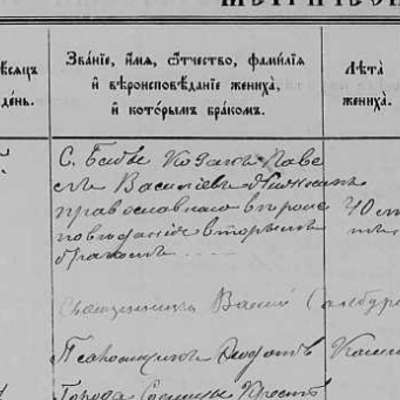 МЕТРИЧЕС
мѣсяцъ
день.
Званіе, имя, отчество, фамилія
и вѣроисповѣданіе жениха,
и которымъ бракомъ.
Лѣта
жениха.
С. Бабы Козакъ Паве
лъ Василіевъ
православнаго вѣроис
повѣданія вторымъ
бракомъ
40
Священникъ Василій
Псаломщикъ
Города Сосницы Крест